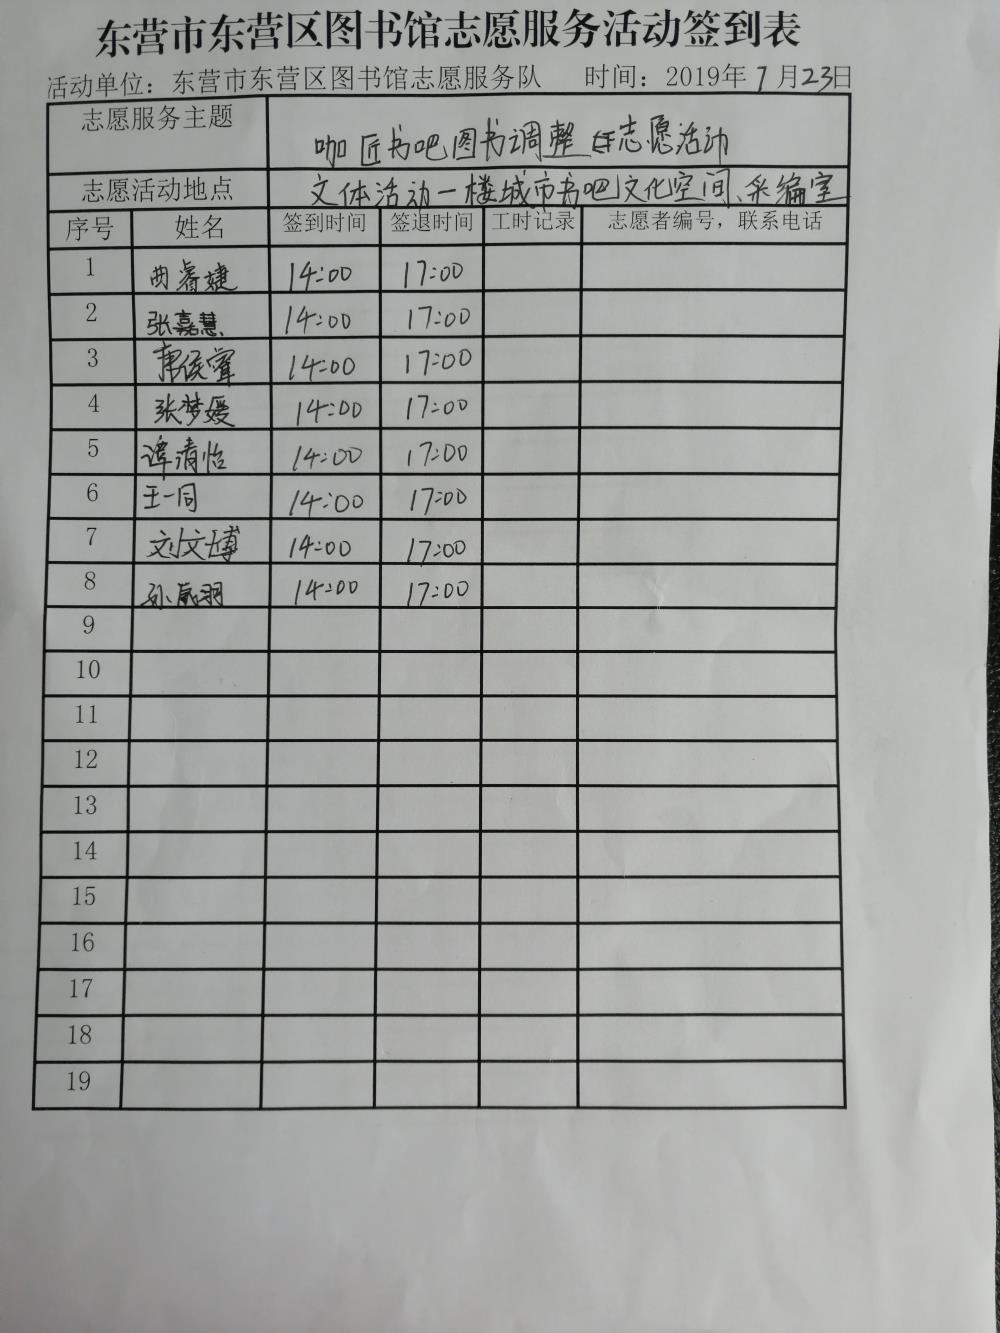 东营市东营区图书馆志愿服务活动签到表
活动单位：东营市东营区图书馆志愿服务队 时间：2019年7月23日
志愿服务主题 咖匠书吧图书调整 志愿活动
志愿活动地点 文体活动一楼城市书吧文化空间、采编室
序号 姓名 签到时间 签退时间 工时记录 志愿者编号，联系电话
1 曲睿婕 14:00 17:00
2 张嘉慧 14:00 17:00
3 14:00 17:00
4 张梦媛 14:00 17:00
5 谭清怡 14:00 17:00
6 王一同 14:00 17:00
7 刘文博 14:00 17:00
8 孙 羽 14:00 17:00
9
10
11
12
13
14
15
16
17
18
19